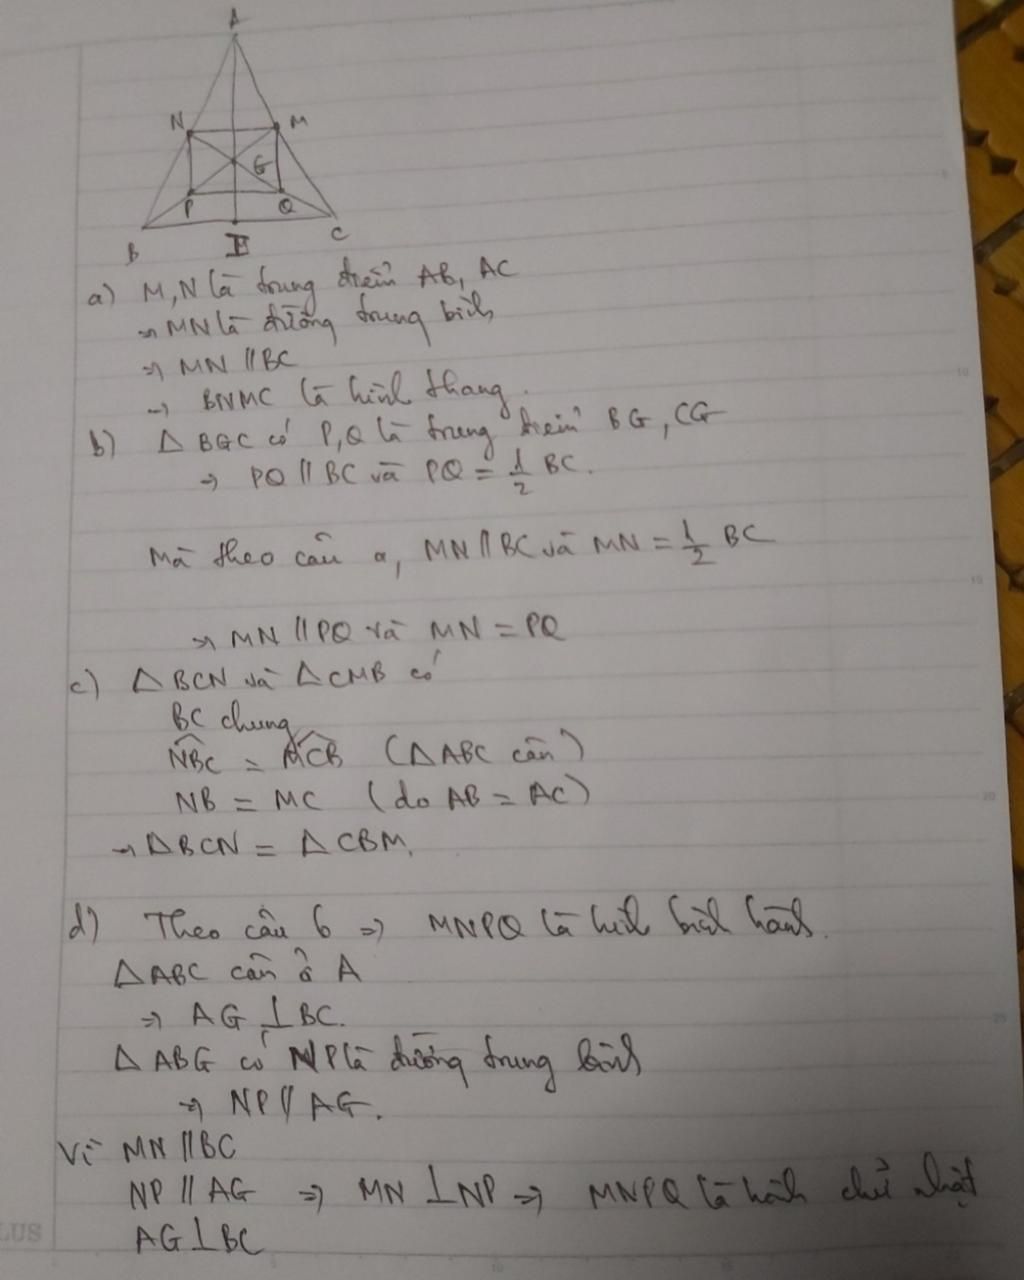 A
N
M
G
P
Q
B
E
C
a) M, N là trung điểm AB, AC
→ MN là đường trung bình
→ MN // BC
→ BNMC là hình thang.
b) △ BGC có P, Q là trung điểm BG, CG
→ PQ // BC và PQ = 1/2 BC.
Mà theo câu a, MN // BC và MN = 1/2 BC
→ MN // PQ và MN = PQ
c) △ BCN và △ CMB có
BC chung
NBC = MCB (△ ABC cân)
NB = MC (do AB = AC)
→ △ BCN = △ CBM.
d) Theo câu b => MNPQ là hình bình hành.
△ ABC cân ở A
=> AG ⊥ BC.
△ ABG có NP là đường trung bình
=> NP // AG.
Vì MN // BC
NP // AG => MN ⊥ NP => MNPQ là hình chữ nhật
AG ⊥ BC
LUS